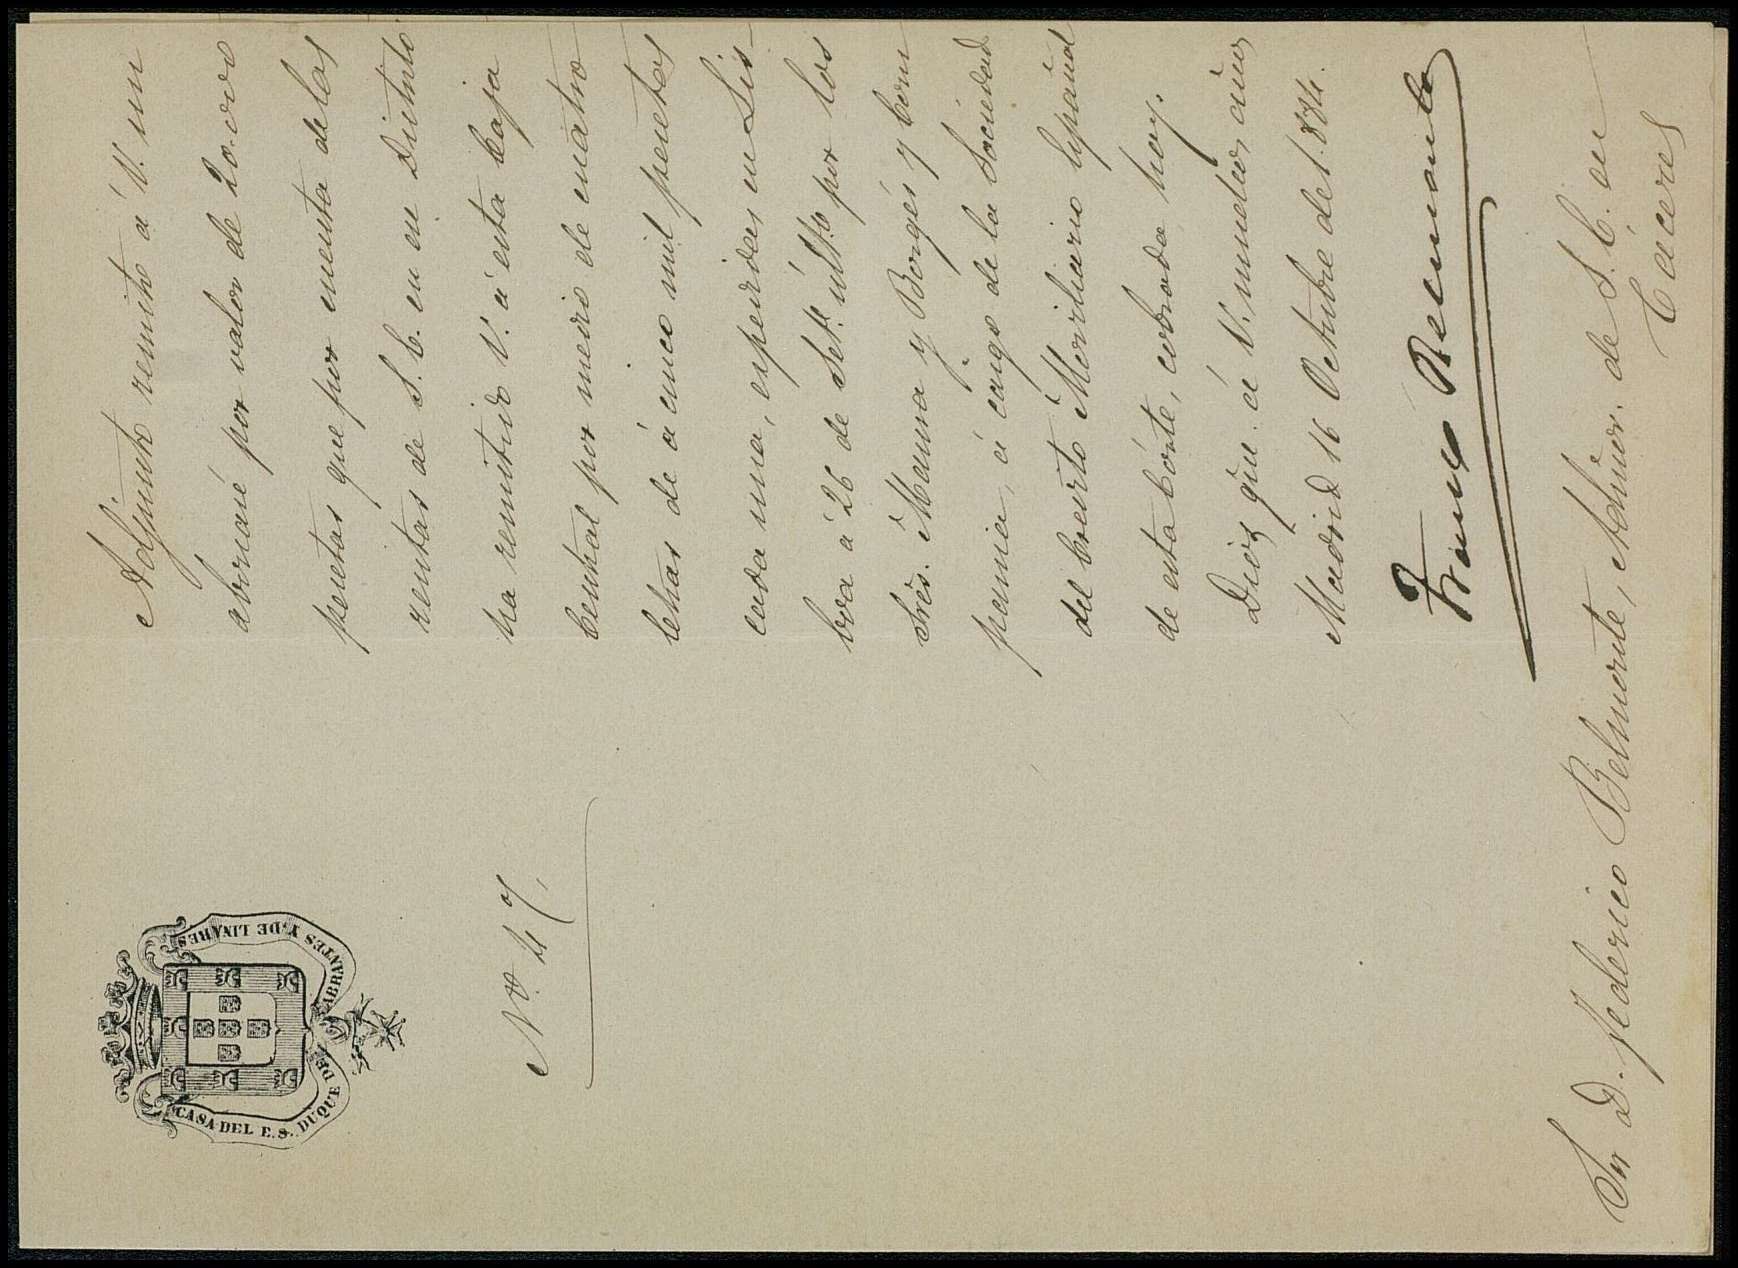 CASA DEL E.S. DUQUE DE ABRANTES Y DE LINARES
Nº. 47,
Adjunto remito á V. un
abonaré por valor de 20.000
pesetas que por cuenta de las
rentas de S. E. en su Distrito
ha remitido V. á esta Caja
Central por medio de cuatro
letras de á cinco mil pesetas
cada una, espedidas en Lis-
boa á 26 de Set.e últ.º por los
Sres. y Borges y Com
pania, á cargo de la Sociedad
del Credito Moviliario Español
de esta Córte, cobrada hoy.
Dios gûe. á V. muchos años
Madrid 16 Octubre de 1.874.
Franco Belmonte
Sor D. Federico Belmonte, Admor. de S. E. en
Cáceres